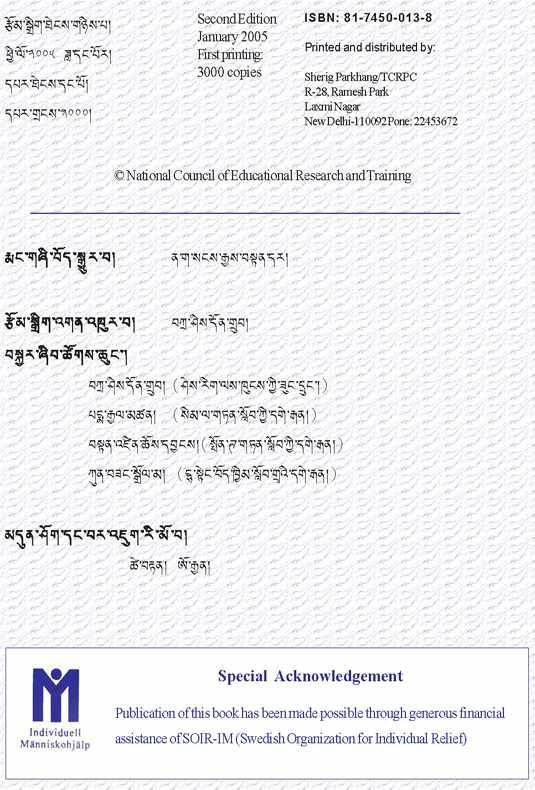 རྩོམ་སྒྲིག་ཐེངས་གཉིས་པ།
ཕྱི་ལོ་༢༠༠༥ ཟླ་དང་པོར།
དཔར་ཐེངས་དང་པོ།
དཔར་གྲངས་༣༠༠༠།
Second Edition
January 2005
First printing:
3000 copies
ISBN: 81-7450-013-8
Printed and distributed by:
Sherig Parkhang/TCRPC
R-28, Ramesh Park
Laxmi Nagar
New Delhi-110092 Pone: 22453672
© National Council of Educational Research and Training
མང་གཞི་བོད་སྒྱུར་བ། ན་ག་སངས་རྒྱས་བསྟན་དར།
རྩོམ་སྒྲིག་འགན་འཁུར་བ། བཀྲ་ཤིས་དོན་གྲུབ།
བསྐྱར་ཞིབ་ཚོགས་ཆུང་།
བཀྲ་ཤིས་དོན་གྲུབ། (ཤེས་རིག་ལས་ཁུངས་ཀྱི་ཟུང་དྲུང་།)
པདྨ་རྒྱལ་མཚན། (སིམ་ལ་གཏན་སློབ་ཀྱི་དགེ་རྒན།)
བསྟན་འཛིན་ཆོས་དབྱངས། (སྤོན་ཊ་གཏན་སློབ་ཀྱི་དགེ་རྒན།)
ཀུན་བཟང་སྒྲོལ་མ། (དྷ་སྟེང་བོད་ཁྱིམ་སློབ་གྲྭའི་དགེ་རྒན།)
མདུན་ཤོག་དང་བར་འཇུག་རི་མོ་བ།
ཚེ་བརྟན། ཨོ་རྒྱན།
Individuell
Människohjälp
Special Acknowledgement
Publication of this book has been made possible through generous financial
assistance of SOIR-IM (Swedish Organization for Individual Relief)